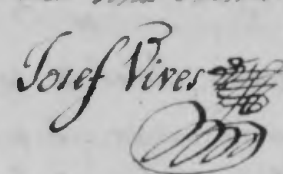 Josef Vives